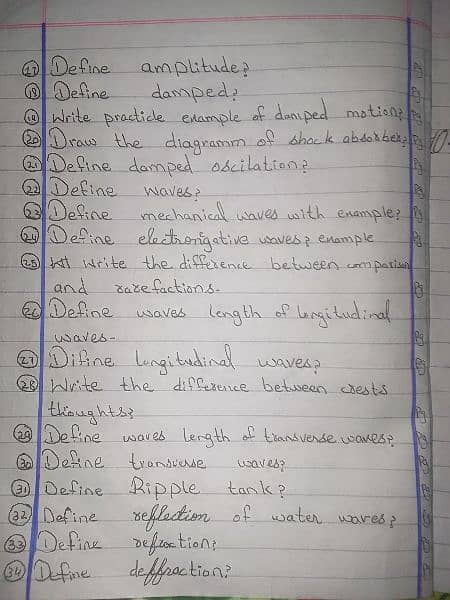 17 Define amplitude?
18 Define damped?
19 Write practicle enample of damped motion?
20 Draw the diagramm of shock absorber?
21 Define damped oscilation?
22 Define waves?
23 Define mechanical waves with enample?
24 Define electromgative waves? enample
25 Write the difference between comparison
and rarefactions.
26 Define waves length of longitudinal
waves-
27 Difine longitudinal waves?
28 Write the difference between crests
thioughts?
29 Define waves length of transverse waves?
30 Define transverse waves?
31 Define Ripple tank?
32 Define reflection of water waves?
33 Define refraction?
34 Define deffraction?